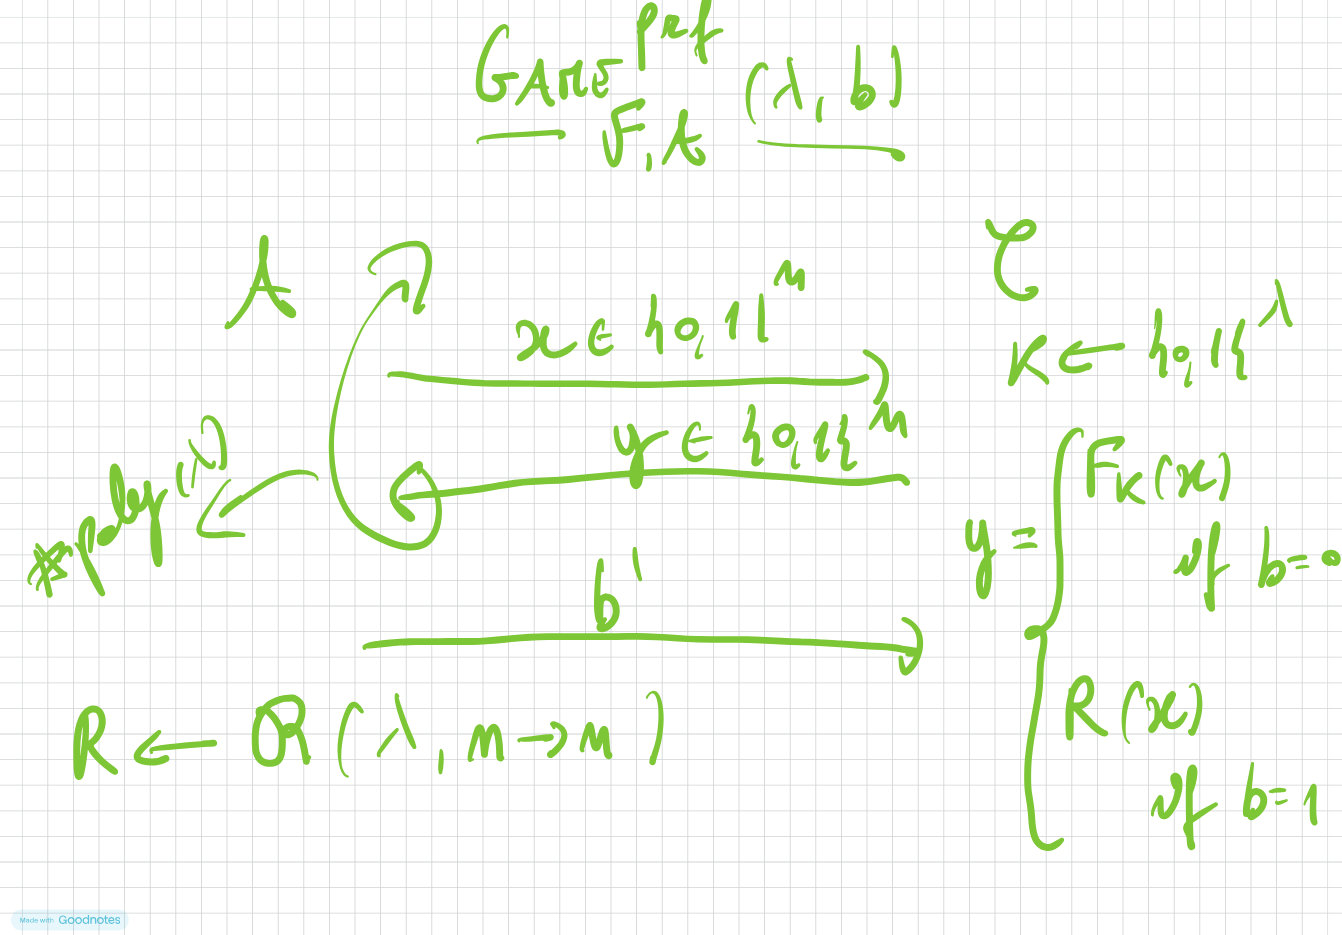 GAME^prf_F,A (λ, b)
A
C
x ∈ {0,1}^n
K ← {0,1}^λ
y ∈ {0,1}^n
# poly(λ)
y = { F_K(x) if b=0
R(x) if b=1
b'
R ← R(λ, n→n)
Made with Goodnotes